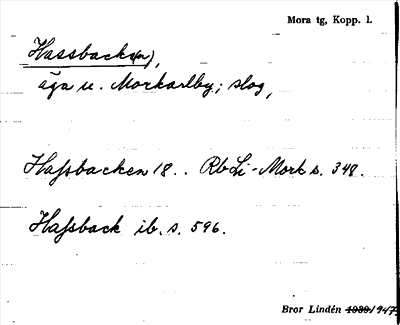 Mora tg, Kopp. l.
Hassback(en),
äga u. Morkarlby; slog,
Hafsbacken 18.. RbLi-Mork s. 348.
Hafsback ib. s. 596.
Bror Lindén 1939/1947.